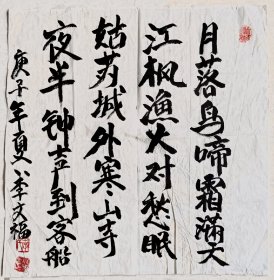 月落乌啼霜满天
江枫渔火对愁眠
姑苏城外寒山寺
夜半钟声到客船
庚子年夏 李文福